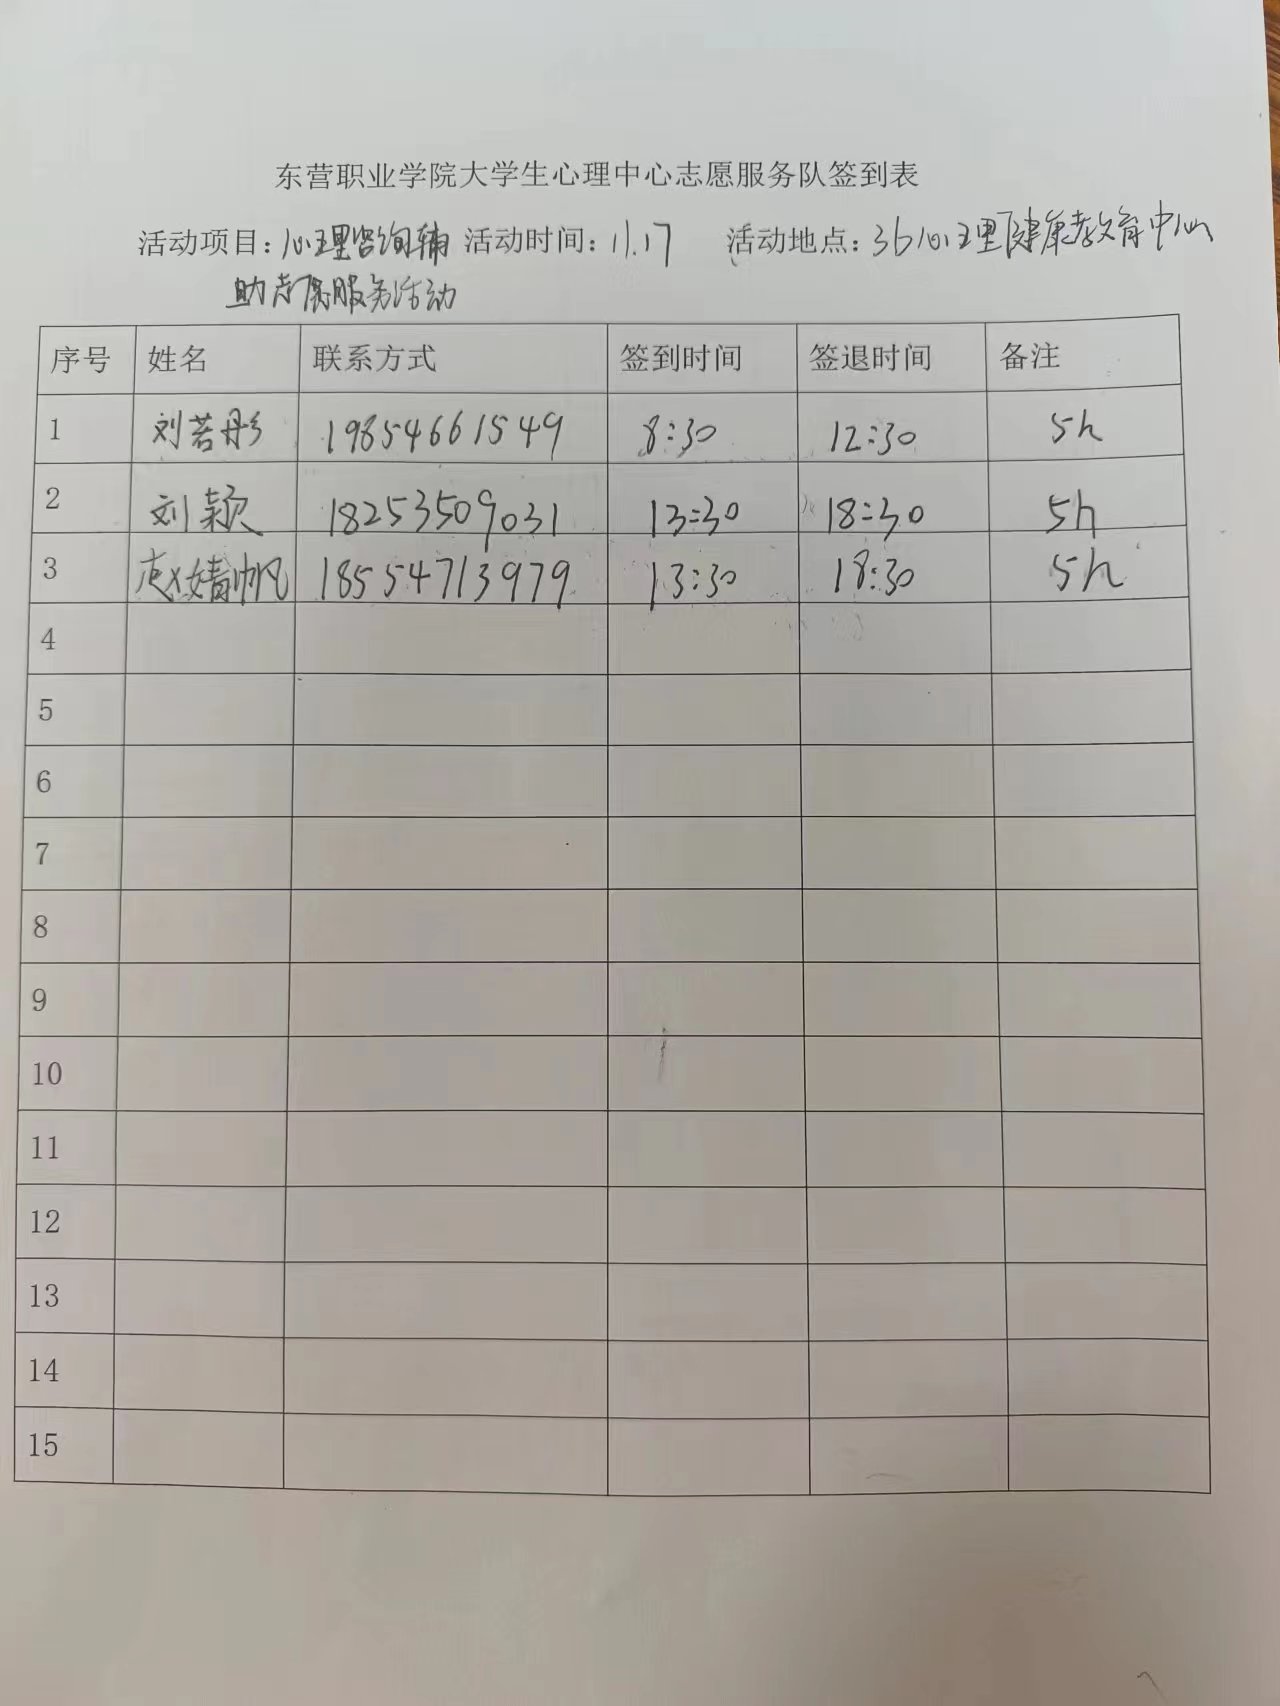 东营职业学院大学生心理中心志愿服务队签到表
活动项目：心理咨询辅 活动时间：11.17 活动地点：36心理健康教育中心
助志愿服务活动
序号 姓名 联系方式 签到时间 签退时间 备注
1 刘若彤 19854661549 8:30 12:30 5h
2 刘颖 18253509031 13:30 18:30 5h
3 赵婧帆 18554713979 13:30 18:30 5h
4
5
6
7
8
9
10
11
12
13
14
15